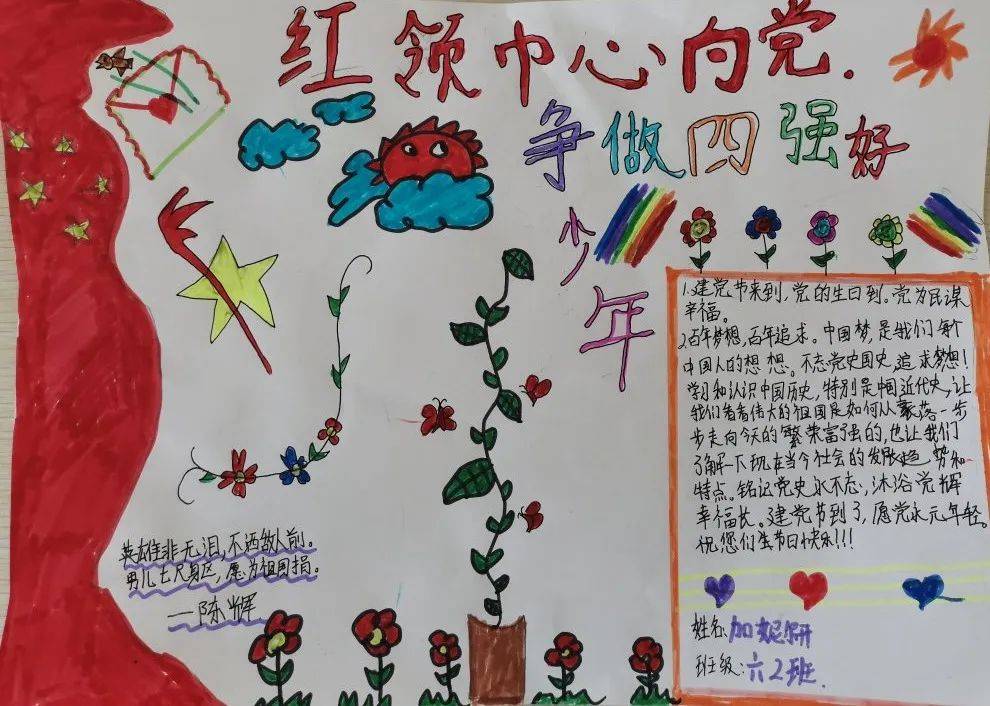 红领巾心向党.
争做四强好
少年
1.建党节来到,党的生日到。党为民谋
幸福。
2.百年梦想,百年追求。中国梦,是我们每个
中国人的想想。不忘党史国史,追求梦想!
学习和认识中国历史,特别是中国近代史,让
我们看看伟大的祖国是如何从衰落一步
步走向今天的繁荣富强的,也让我们
了解一下现在当今社会的发展趋势和
特点。铭记党史永不忘,沐浴党辉
幸福长。建党节到了,愿党永元年轻。
祝您们生节日快乐!!!
英雄非无泪,不洒敌人前。
男儿七尺身区,愿为祖国捐。
—陈辉
姓名:加妮研
班级:六2班.